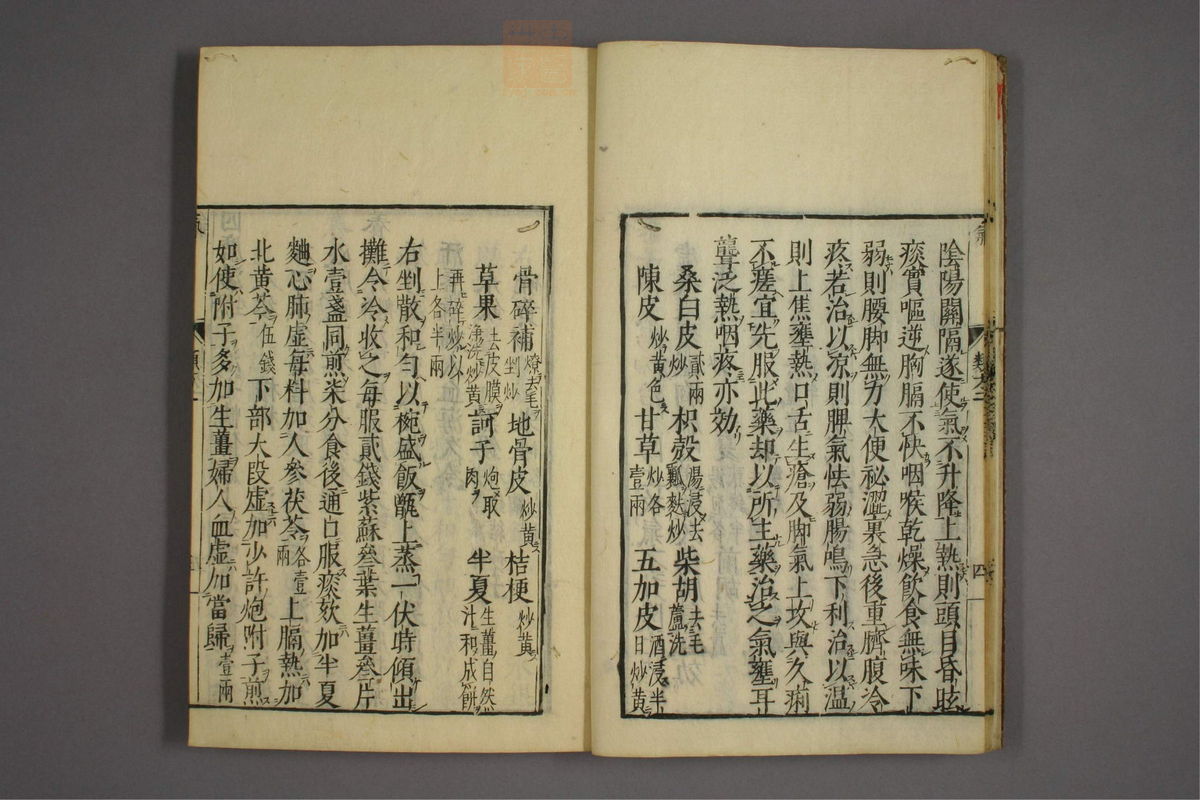 陰陽關隔遂使氣不升降上熱則頭目昏眩
痰實嘔逆胸膈不快咽喉乾燥飲食無味下
弱則腰脚無力大便祕澀裏急後重臍腹冷
疼若治以凉則脾氣怯弱腸鳴下利治以温
則上焦壅熱口舌生瘡及脚氣上攻與久痢
不瘥宜先服此藥却以所主藥治之氣壅耳
聾泛熱咽疼亦効
桑白皮貳兩炒 枳殼湯浸去瓤麩炒 柴胡去毛蘆洗
陳皮炒黄色 甘草炒各壹兩 五加皮酒浸半日炒黄
骨碎補燎去毛剉炒 地骨皮炒黄 桔梗炒黄
草果去皮膜淨洗炒黄再碎炒以上各半兩 訶子炮取肉 半夏生薑自然汁和成餅
右剉散和匀以椀盛飯甑上蒸一伏時傾出
攤令冷收之每服貳錢紫蘇叁葉生薑叁片
水壹盞同煎柒分食後通口服痰欬加半夏
麯心肺虛每料加人參茯苓各壹兩上膈熱加
北黄芩伍錢下部大段虛加少許炮附子煎
如使附子多加生薑婦人血虛加當歸壹兩